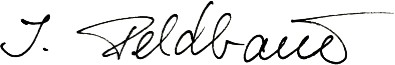 J. Feldbau